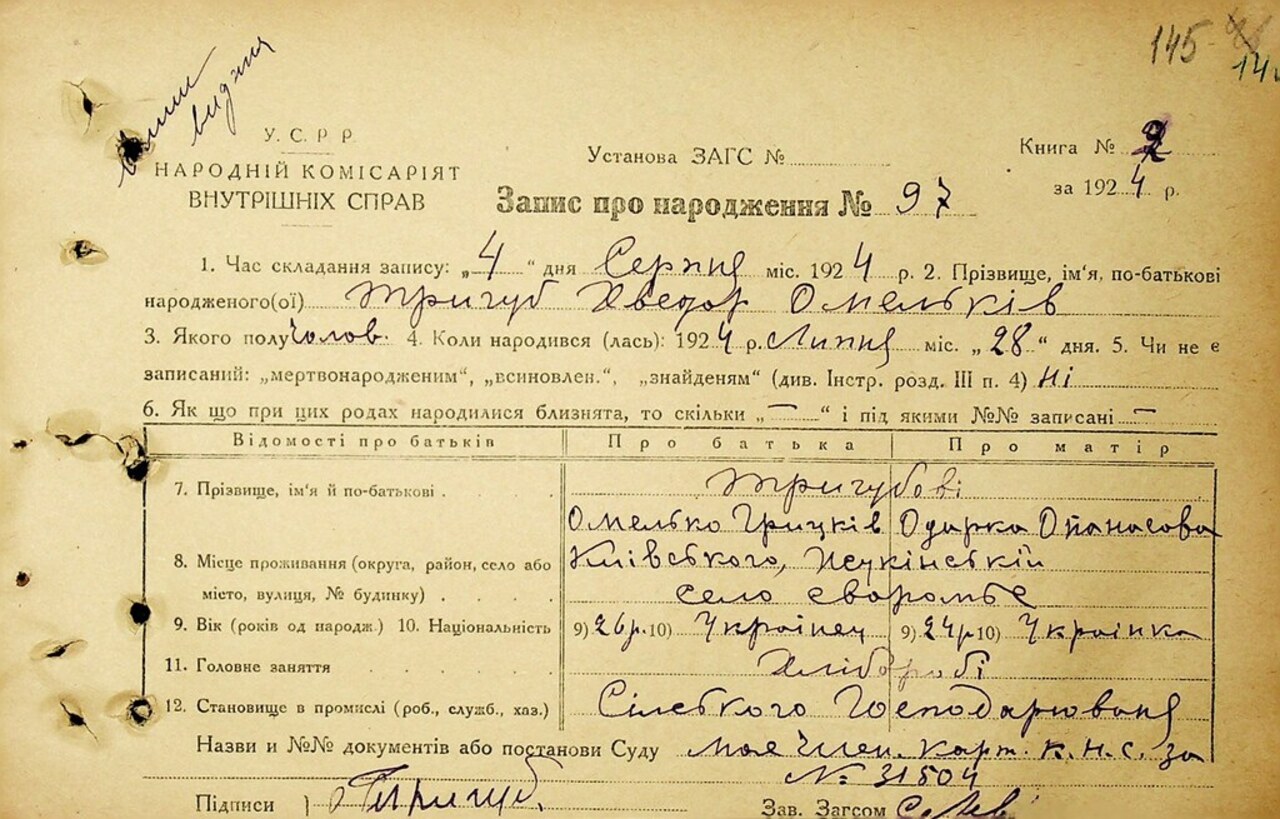 145
видана
У. С. Р Р.
НАРОДНІЙ КОМІСАРІЯТ
ВНУТРІШНІХ СПРАВ
Установа ЗАГС №
Книга № 2
за 1924 р.
Запис про народження № 97
1. Час складання запису: „4“ дня Серпня міс. 1924 р. 2. Прізвище, ім‘я, по-батькові
народженого(ої) Тригуб Хведор Омельків
3. Якого полу Чолов. 4. Коли народився (лась): 1924 р. Липня міс. „28“ дня. 5. Чи не є
записаний: „мертвонародженим“, „всиновлен.“, „знайденям“ (див. Інстр. розд. III п. 4) Ні
6. Як що при цих родах народилися близнята, то скільки „—“ і під якими №№ записані —
Відомості про батьків Про батька Про матір
7. Прізвище, ім‘я й по-батькові Тригубові
Омелько Грицків Одарка Опанасова
8. Місце проживання (округа, район, село або Київського,
місто, вулиця, № будинку) село
9. Вік (років од народж.) 10. Національність 9) 26 р. 10) Українец 9) 24 р 10) Українка
11. Головне заняття Хліборобі
12. Становище в промислі (роб., служб., хаз.) Сільського Господарювання
Назви и №№ документів або постанови Суду карт. к. н. с. за
№ 31504
Підписи Тригуб.
Зав. Загсом